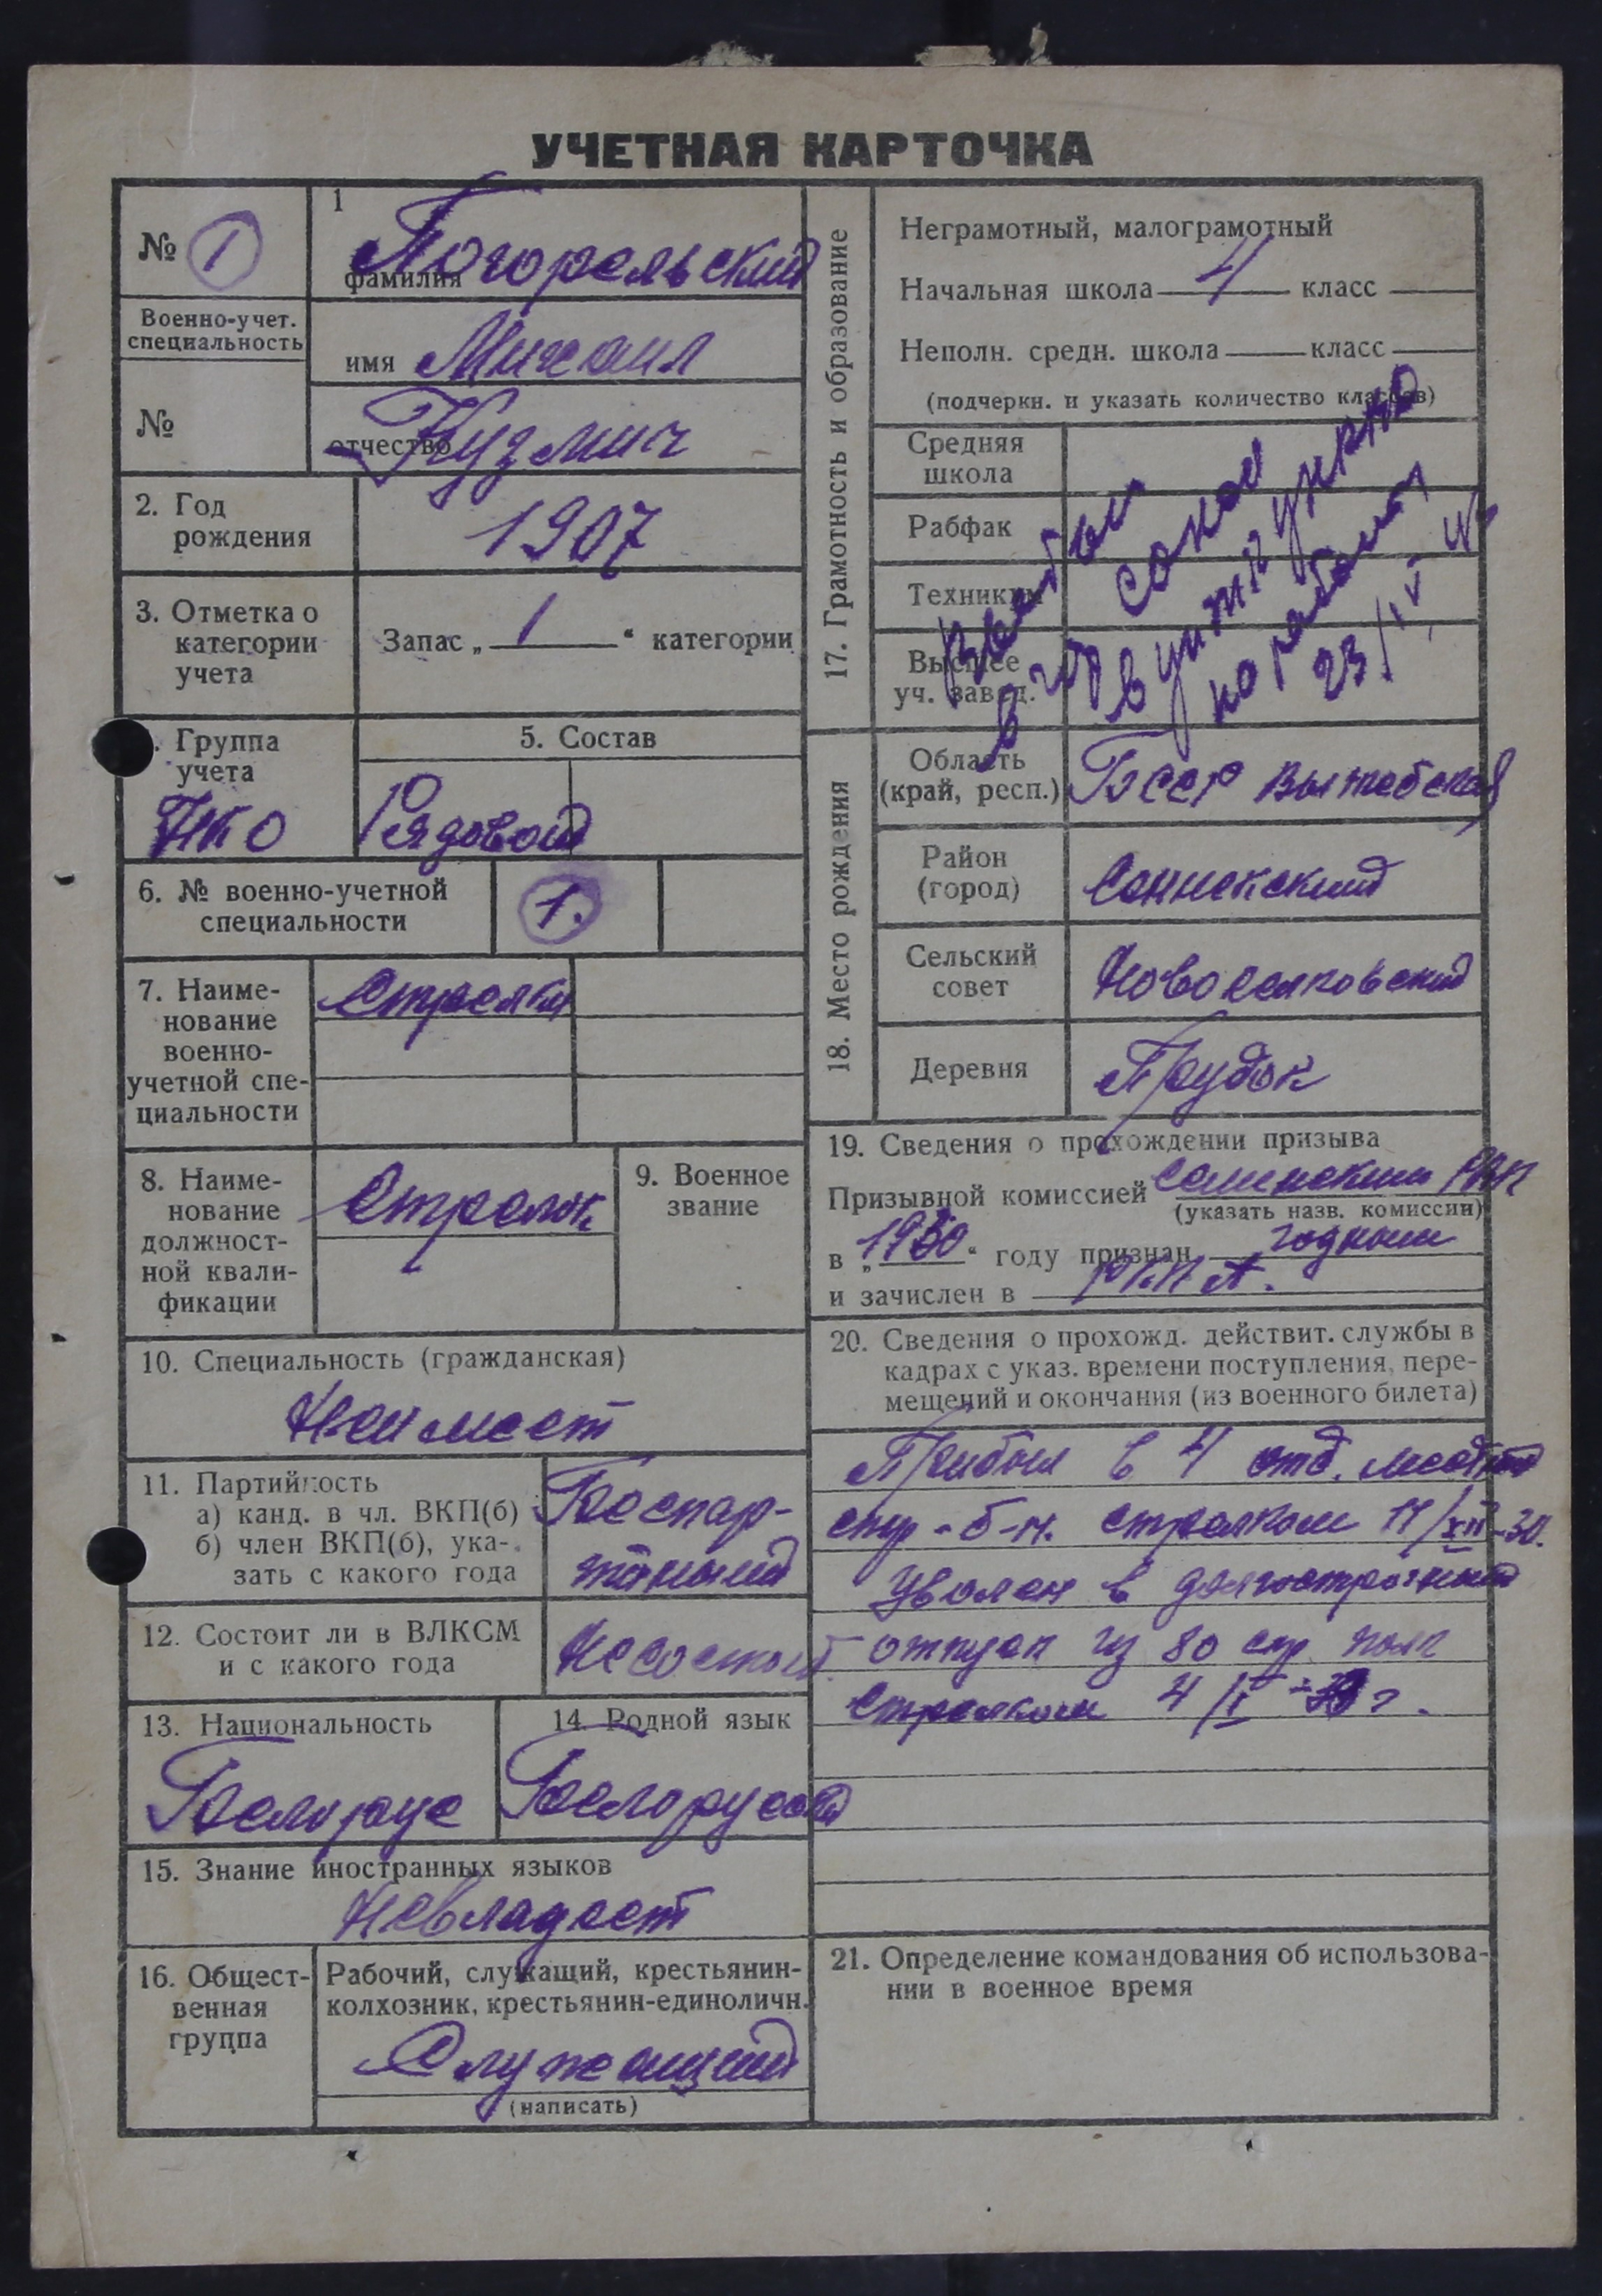 УЧЕТНАЯ КАРТОЧКА
№ 1
1
Погорельский
фамилия
Военно-учет.
специальность
имя Михаил
№
отчество Кузмич
2. Год
рождения
1907
3. Отметка о
категории
учета
Запас „ 1 “ категории
Группа
учета
НКО
5. Состав
Рядовой
6. № военно-учетной
специальности
1.
7. Наиме-
нование
военно-
учетной спе-
циальности
Стрелки
8. Наиме-
нование
должност-
ной квали-
фикации
Стрелок
9. Военное
звание
10. Специальность (гражданская)
Неимеет
11. Партийность
а) канд. в чл. ВКП(б)
б) член ВКП(б), ука-
зать с какого года
Беспар-
тийный
12. Состоит ли в ВЛКСМ
и с какого года
Несостоит
13. Национальность
Белорус
14. Родной язык
15. Знание иностранных языков
Невладеет
16. Общест-
венная
группа
Рабочий, служащий, крестьянин-
колхозник, крестьянин-единоличн.
Служащий
(написать)
17. Грамотность и образование
Неграмотный, малограмотный
Начальная школа 4 класс
Неполн. средн. школа класс
(подчеркн. и указать количество классов)
Средняя
школа
Рабфак
Техникум
Высшее
уч. завед.
Выбыл
в гор
в
на работу
23/IV
18. Место рождения
Область
(край, респ.)
БССР Витебская
Район
(город)
Сенненский
Сельский
совет
Новоселковский
Деревня
Прудок
19. Сведения о прохождении призыва
Призывной комиссией Сенненским РВК
(указать назв. комиссии)
в „1930“ году признан годным
и зачислен в РККА.
20. Сведения о прохожд. действит. службы в
кадрах с указ. времени поступления, пере-
мещений и окончания (из военного билета)
Прибыл в 4 отд. местный
стр-б-н. стрелком 11/XII-30.
Уволен в долгострочный
отпуск из 80 стр. полк
Стрелком 4/I г.
21. Определение командования об использова-
нии в военное время